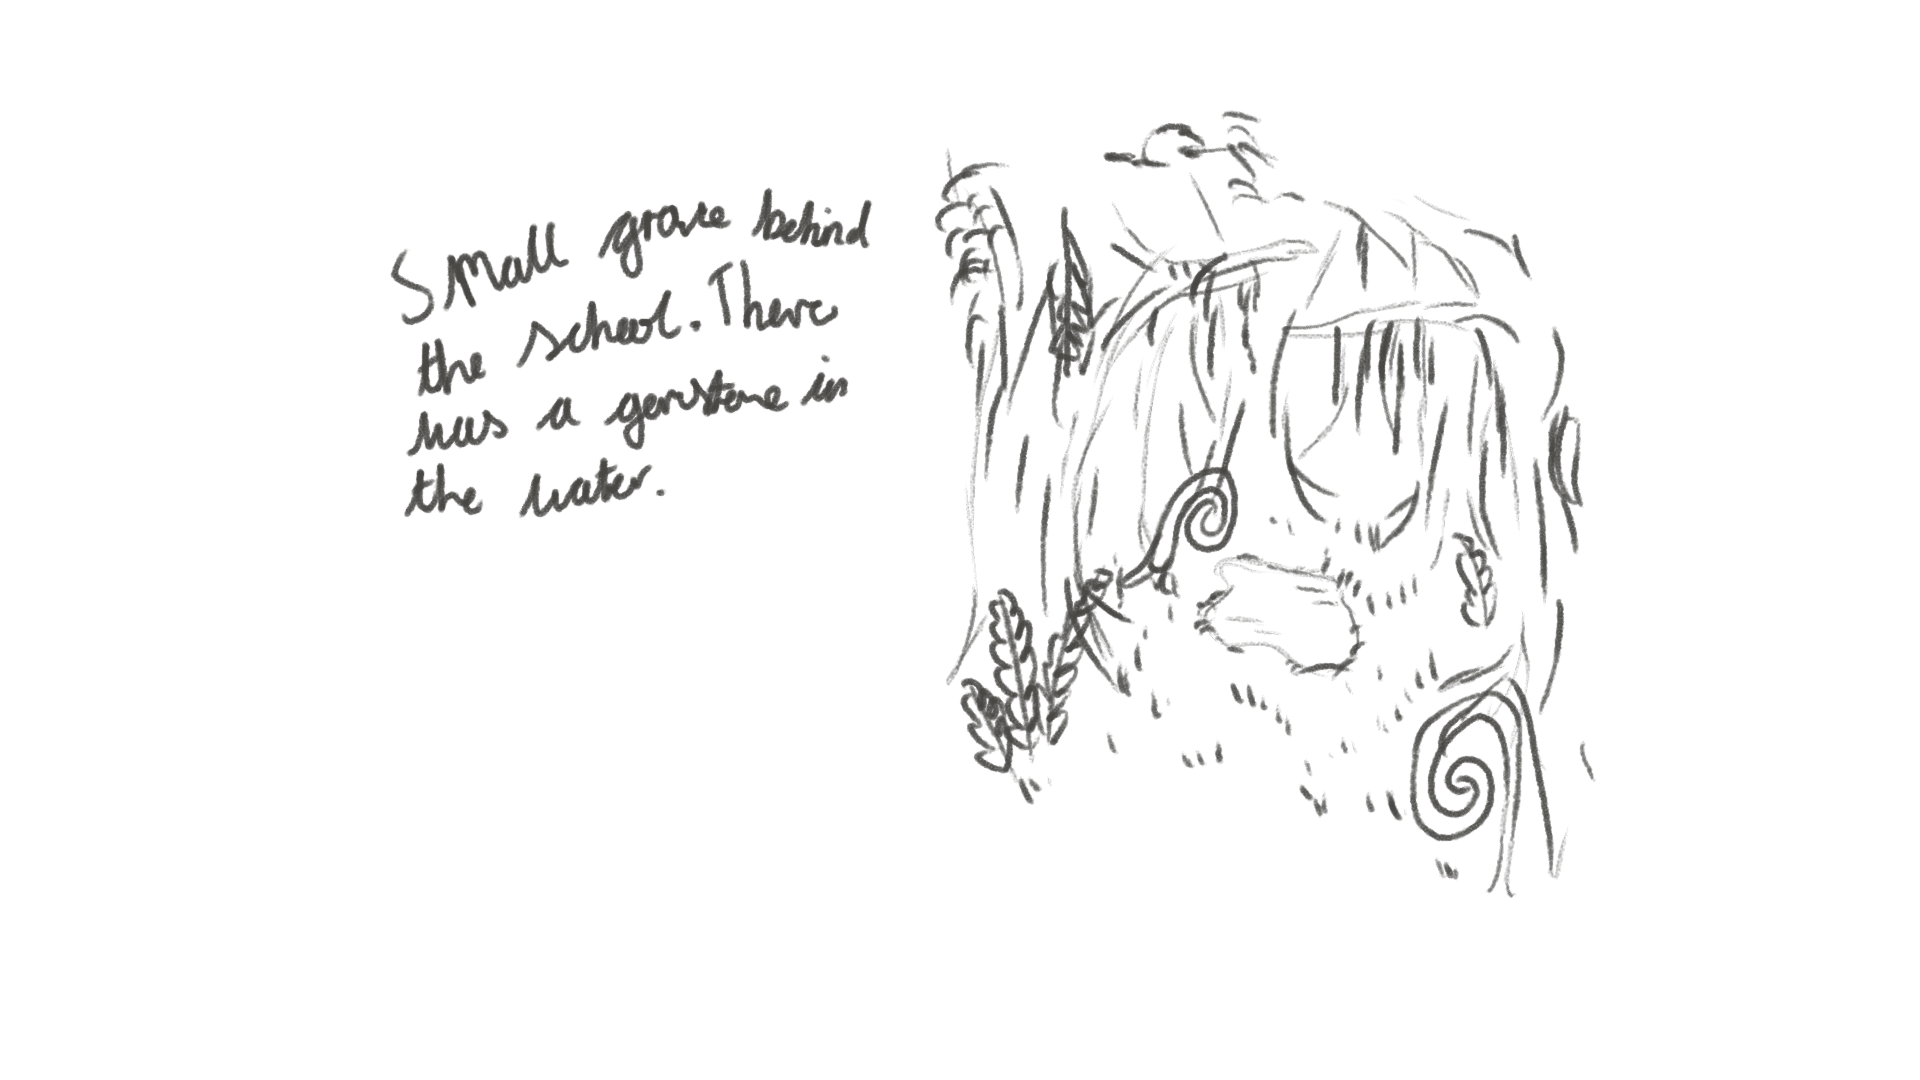 Small grove behind
the school. There
was a gemstone in
the water.